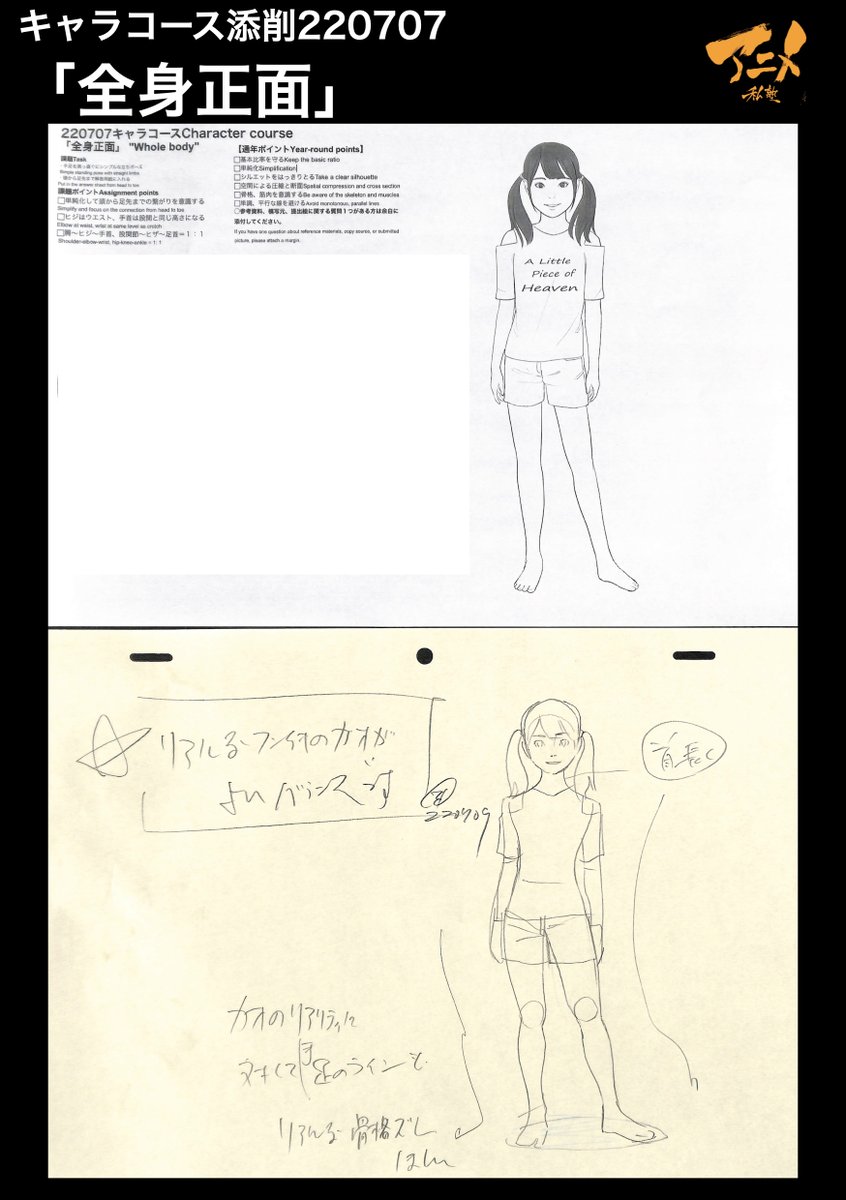 キャラコース添削220707
「全身正面」
アニメ
私塾
220707キャラコースCharacter course
「全身正面」 "Whole body"
課題Task
・手足を真っ直ぐにシンプルな立ちポーズ
Simple standing pose with straight limbs
・頭から足先まで解答用紙に入れる
Put in the answer sheet from head to toe
課題ポイントAssignment points
□単純化して頭から足先までの繋がりを意識する
Simplify and focus on the connection from head to toe
□ヒジはウエスト、手首は股関と同じ高さになる
Elbow at waist, wrist at same level as crotch
□肩〜ヒジ〜手首、股関節〜ヒザ〜足首=1:1
Shoulder-elbow-wrist, hip-knee-ankle = 1: 1
【通年ポイントYear-round points】
□基本比率を守るKeep the basic ratio
□単純化Simplification
□シルエットをはっきりとるTake a clear silhouette
□空間による圧縮と断面Spatial compression and cross section
□骨格、筋肉を意識するBe aware of the skeleton and muscles
□単調、平行な線を避けるAvoid monotonous, parallel lines
○参考資料、模写元、提出絵に関する質問1つがある方は余白に
添付してください。
If you have one question about reference materials, copy source, or submitted
picture, please attach a margin.
A Little
Piece of
Heaven
リアルな
カオが
よいバランスです
220709
首長く
カオのリアリティに
対して手足のラインも
リアルな骨格
ほしい